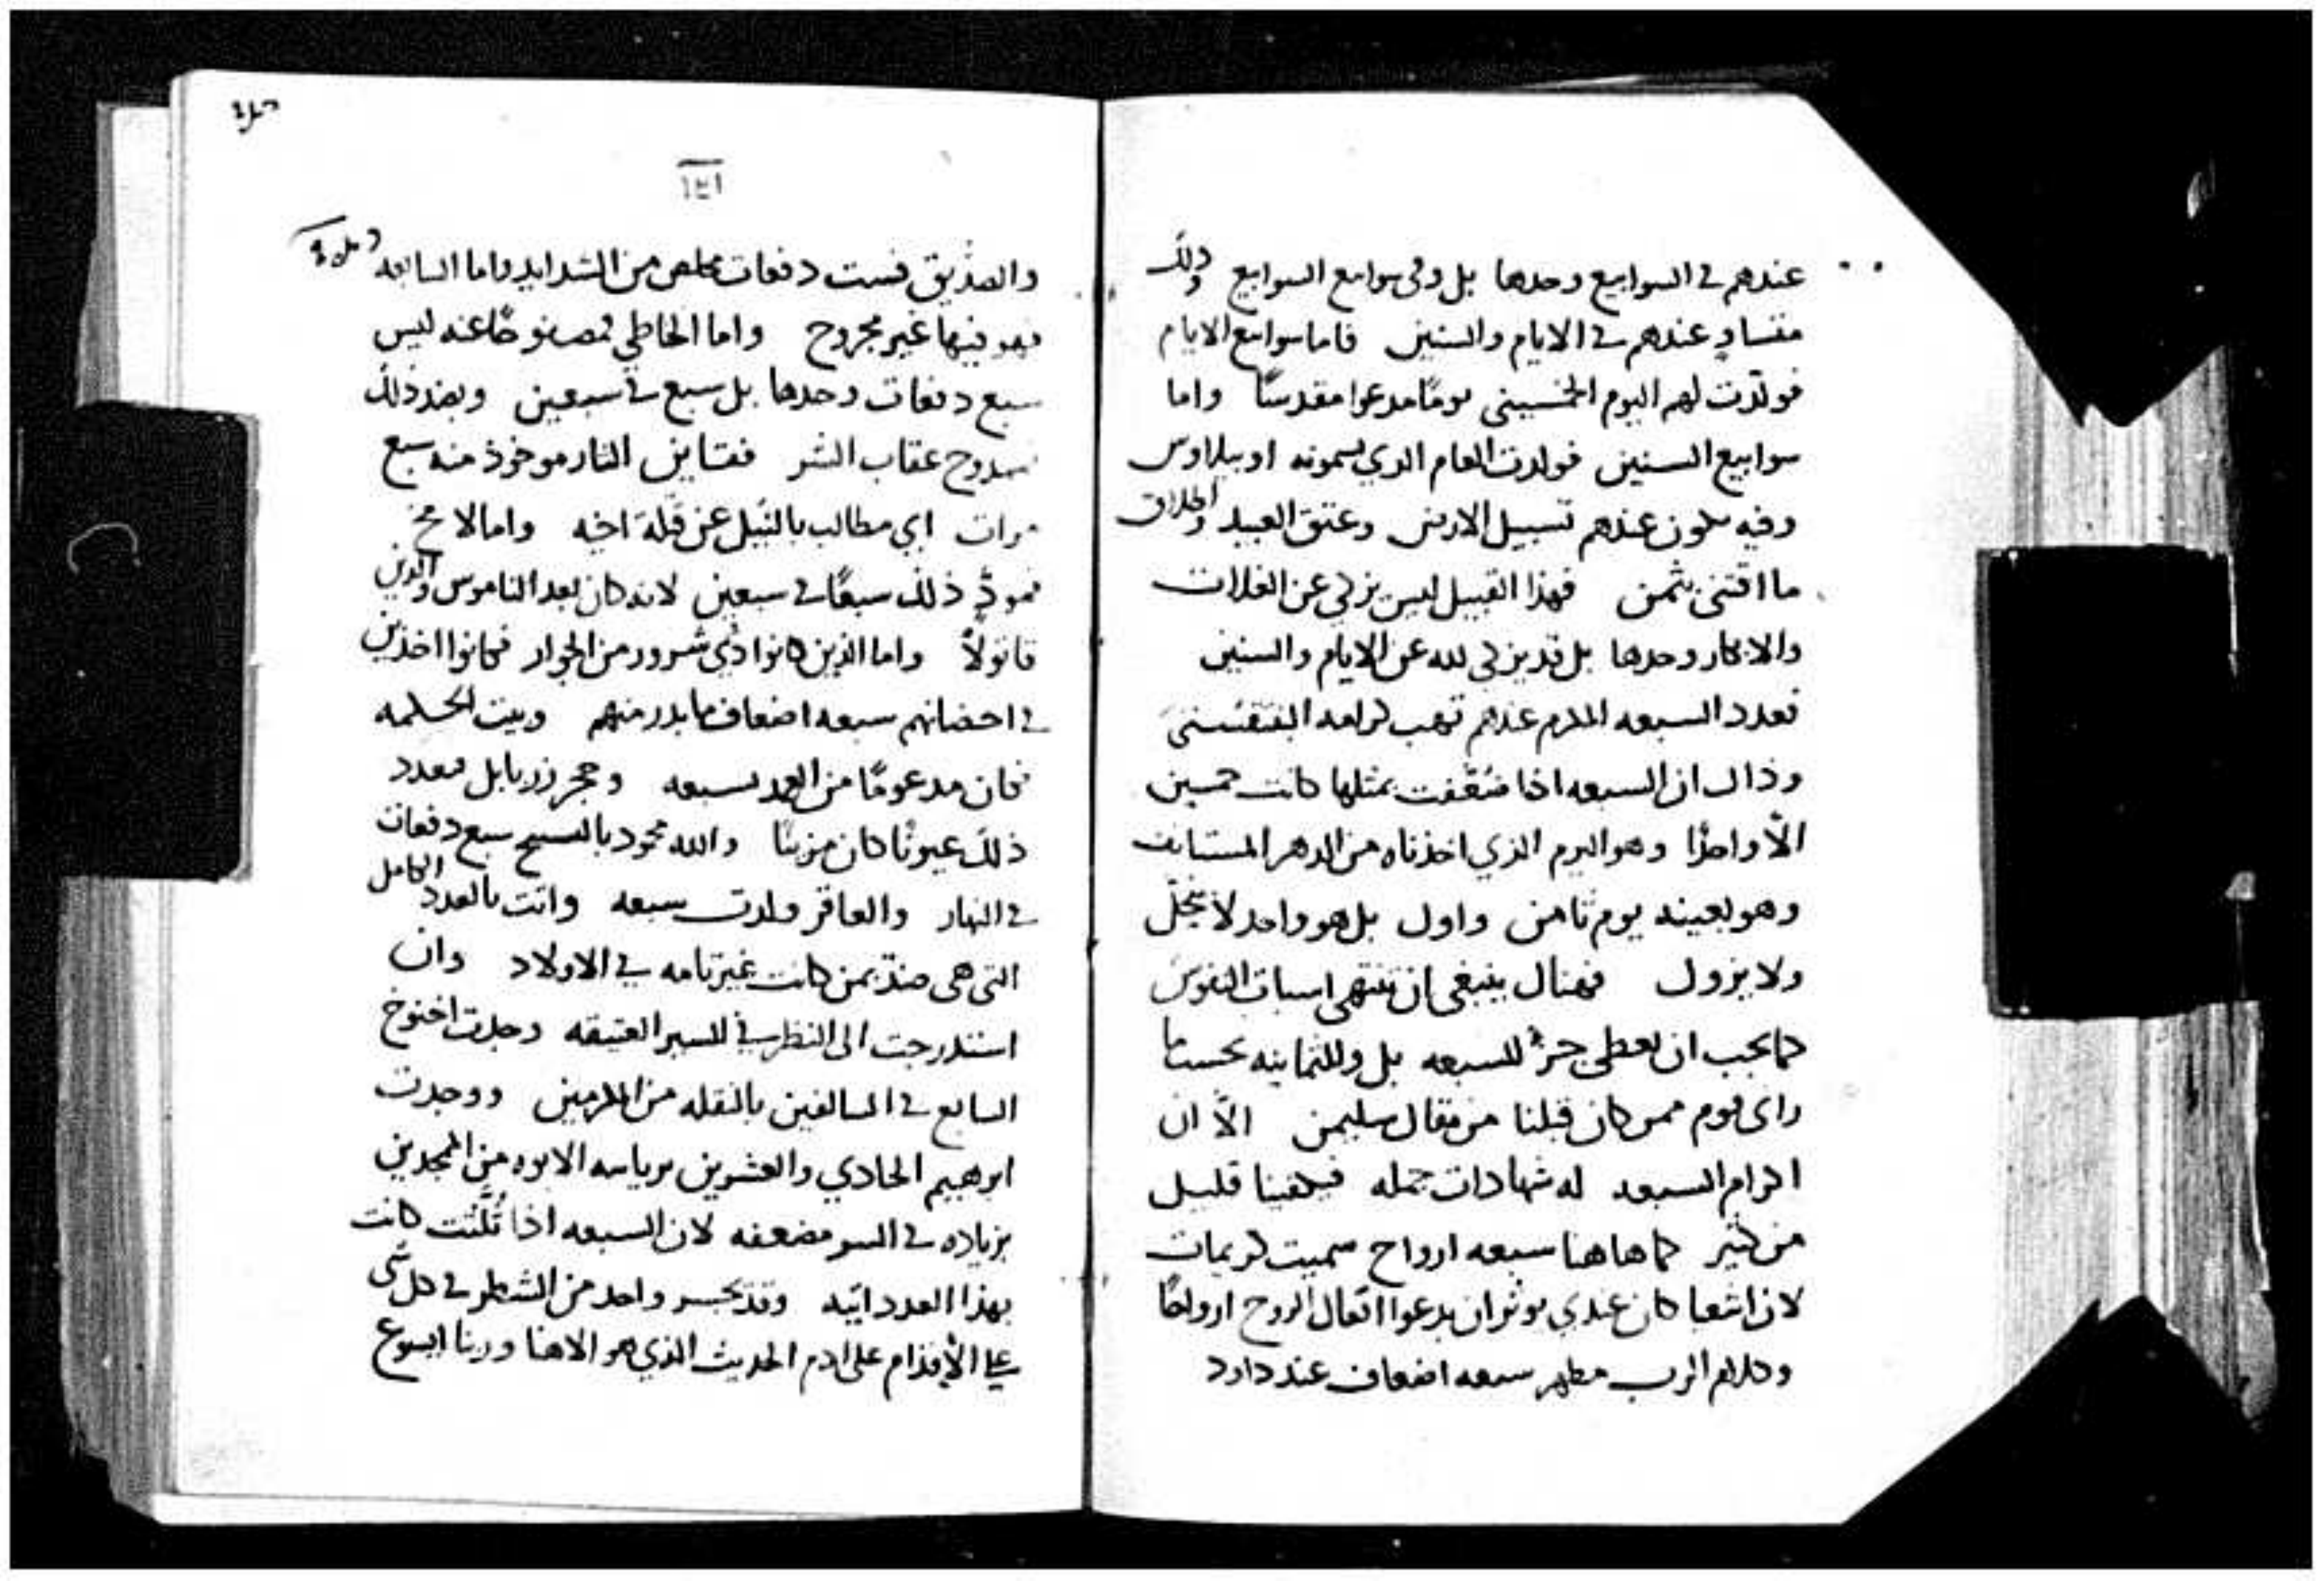 عندهم في السوابيع وحدها بل وفي سوابيع السوابيع وذلك
متساوٍ عندهم في الايام والسنين فاما سوابيع الايام
فولّدت لهم اليوم الخمسيني يومًا مدعوا مقدسًا واما
سوابيع السنين فولدت العام الدي يسمونه اوبيلاوس
وفيه يكون عندهم تسبيل الارض وعتق العبيد واطلاق
ما اقتني بثمن فهذا القبيل ليس يزكي عن الغلات
والابكار وحدها بل قد يزكي لله عن الايام والسنين
فعدد السبعه المكرم عندهم تهب كرامه البنتقسني
وذاك ان السبعه اذا ضعّفت بمثلها كانت خمسين
الّا واحدًا وهو اليوم الذي اخذناه من الدهر المستانف
وهو بعينه يوم ثامن واول بل هو واحد لا ينحلّ
ولا يزول فهناك ينبغي ان تنتهي اسبات النفوس
كما يجب ان يعطى جزءٌ للسبعه بل وللثمانيه بحسب ما
راى قوم ممن كان قبلنا من مقال سليمن الّا ان
اكرام السبعه له شهادات جمله فيكفينا قليل
من كثير كما هاهنا سبعه ارواح سميت كريمات
لان اشعيا كان عندي يوثر ان يدعوا افعال الروح ارواحًا
وكلام الرب مطهر سبعه اضعاف عند داود
١٤١
والصدّيق فست دفعات مخلص من الشدايد واما السابعه
فهو فيها غير مجروح واما الخاطي فمصفوحًا عنه ليس
سبع دفعات وحدها بل سبع في سبعين وبضد ذلك
ممدوح عقاب الشر فقاين الثار موخوذ منه سبع
مرات اي مطالب بالنبل عن قتله اخيه واما لامخ
فمودٍّ ذلك سبعًا في سبعين لانه كان بعد الناموس والدين
قاتولاً واما الذين كانوا ذي شرور من الجوار فكانوا اخذين
في احضانهم سبعه اضعاف ما بدر منهم وبيت الحكمه
فكان مدعومًا من العمد بسبعه وحجر زربابل فبعدد
ذلك عيونًا كان مزينًا والله محمود بالتسبيح سبع دفعات
في النهار والعاقر ولدت سبعه وانت بالعدد الكامل
التي هي ضدّ بمن كانت غير تامه في الاولاد وان
استدرجت الى النظر في السير العتيقه وجدت اخنوخ
السابع في السالفين بالنقله من المكرمين ووجدت
ابرهيم الحادي والعشرين برياسه الابوه من الممجدين
بزياده في السر مضعفه لان السبعه اذا ثلّثت كانت
بهذا العدد اتيه وقد يجسر واحد من الشطر في كل شي
على الأقدام على ادم الحديث الذي هو الاهنا وربنا ايسوع